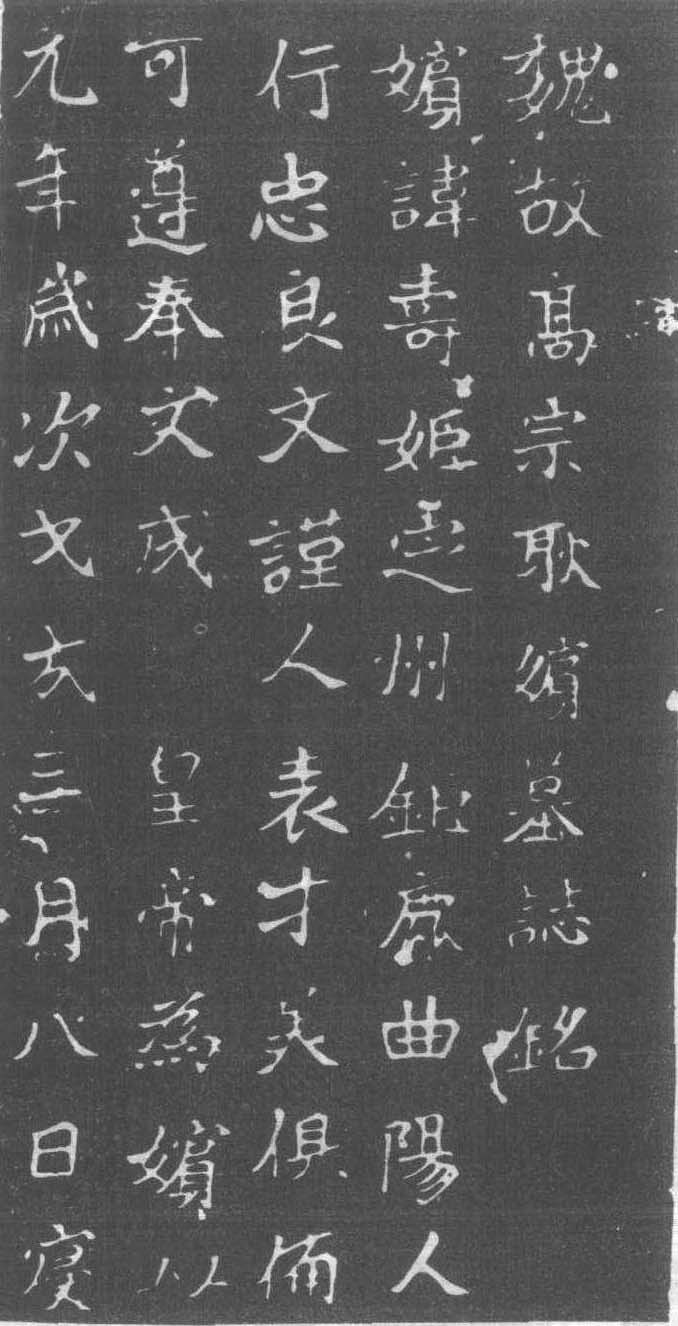 魏故髙宗耿嬪墓誌銘
嬪諱壽姬定州鉅鹿曲陽人
行忠良文謹人表才美俱備
可遵奉文成皇帝為嬪以
元年歲次戊戌三月八日寢